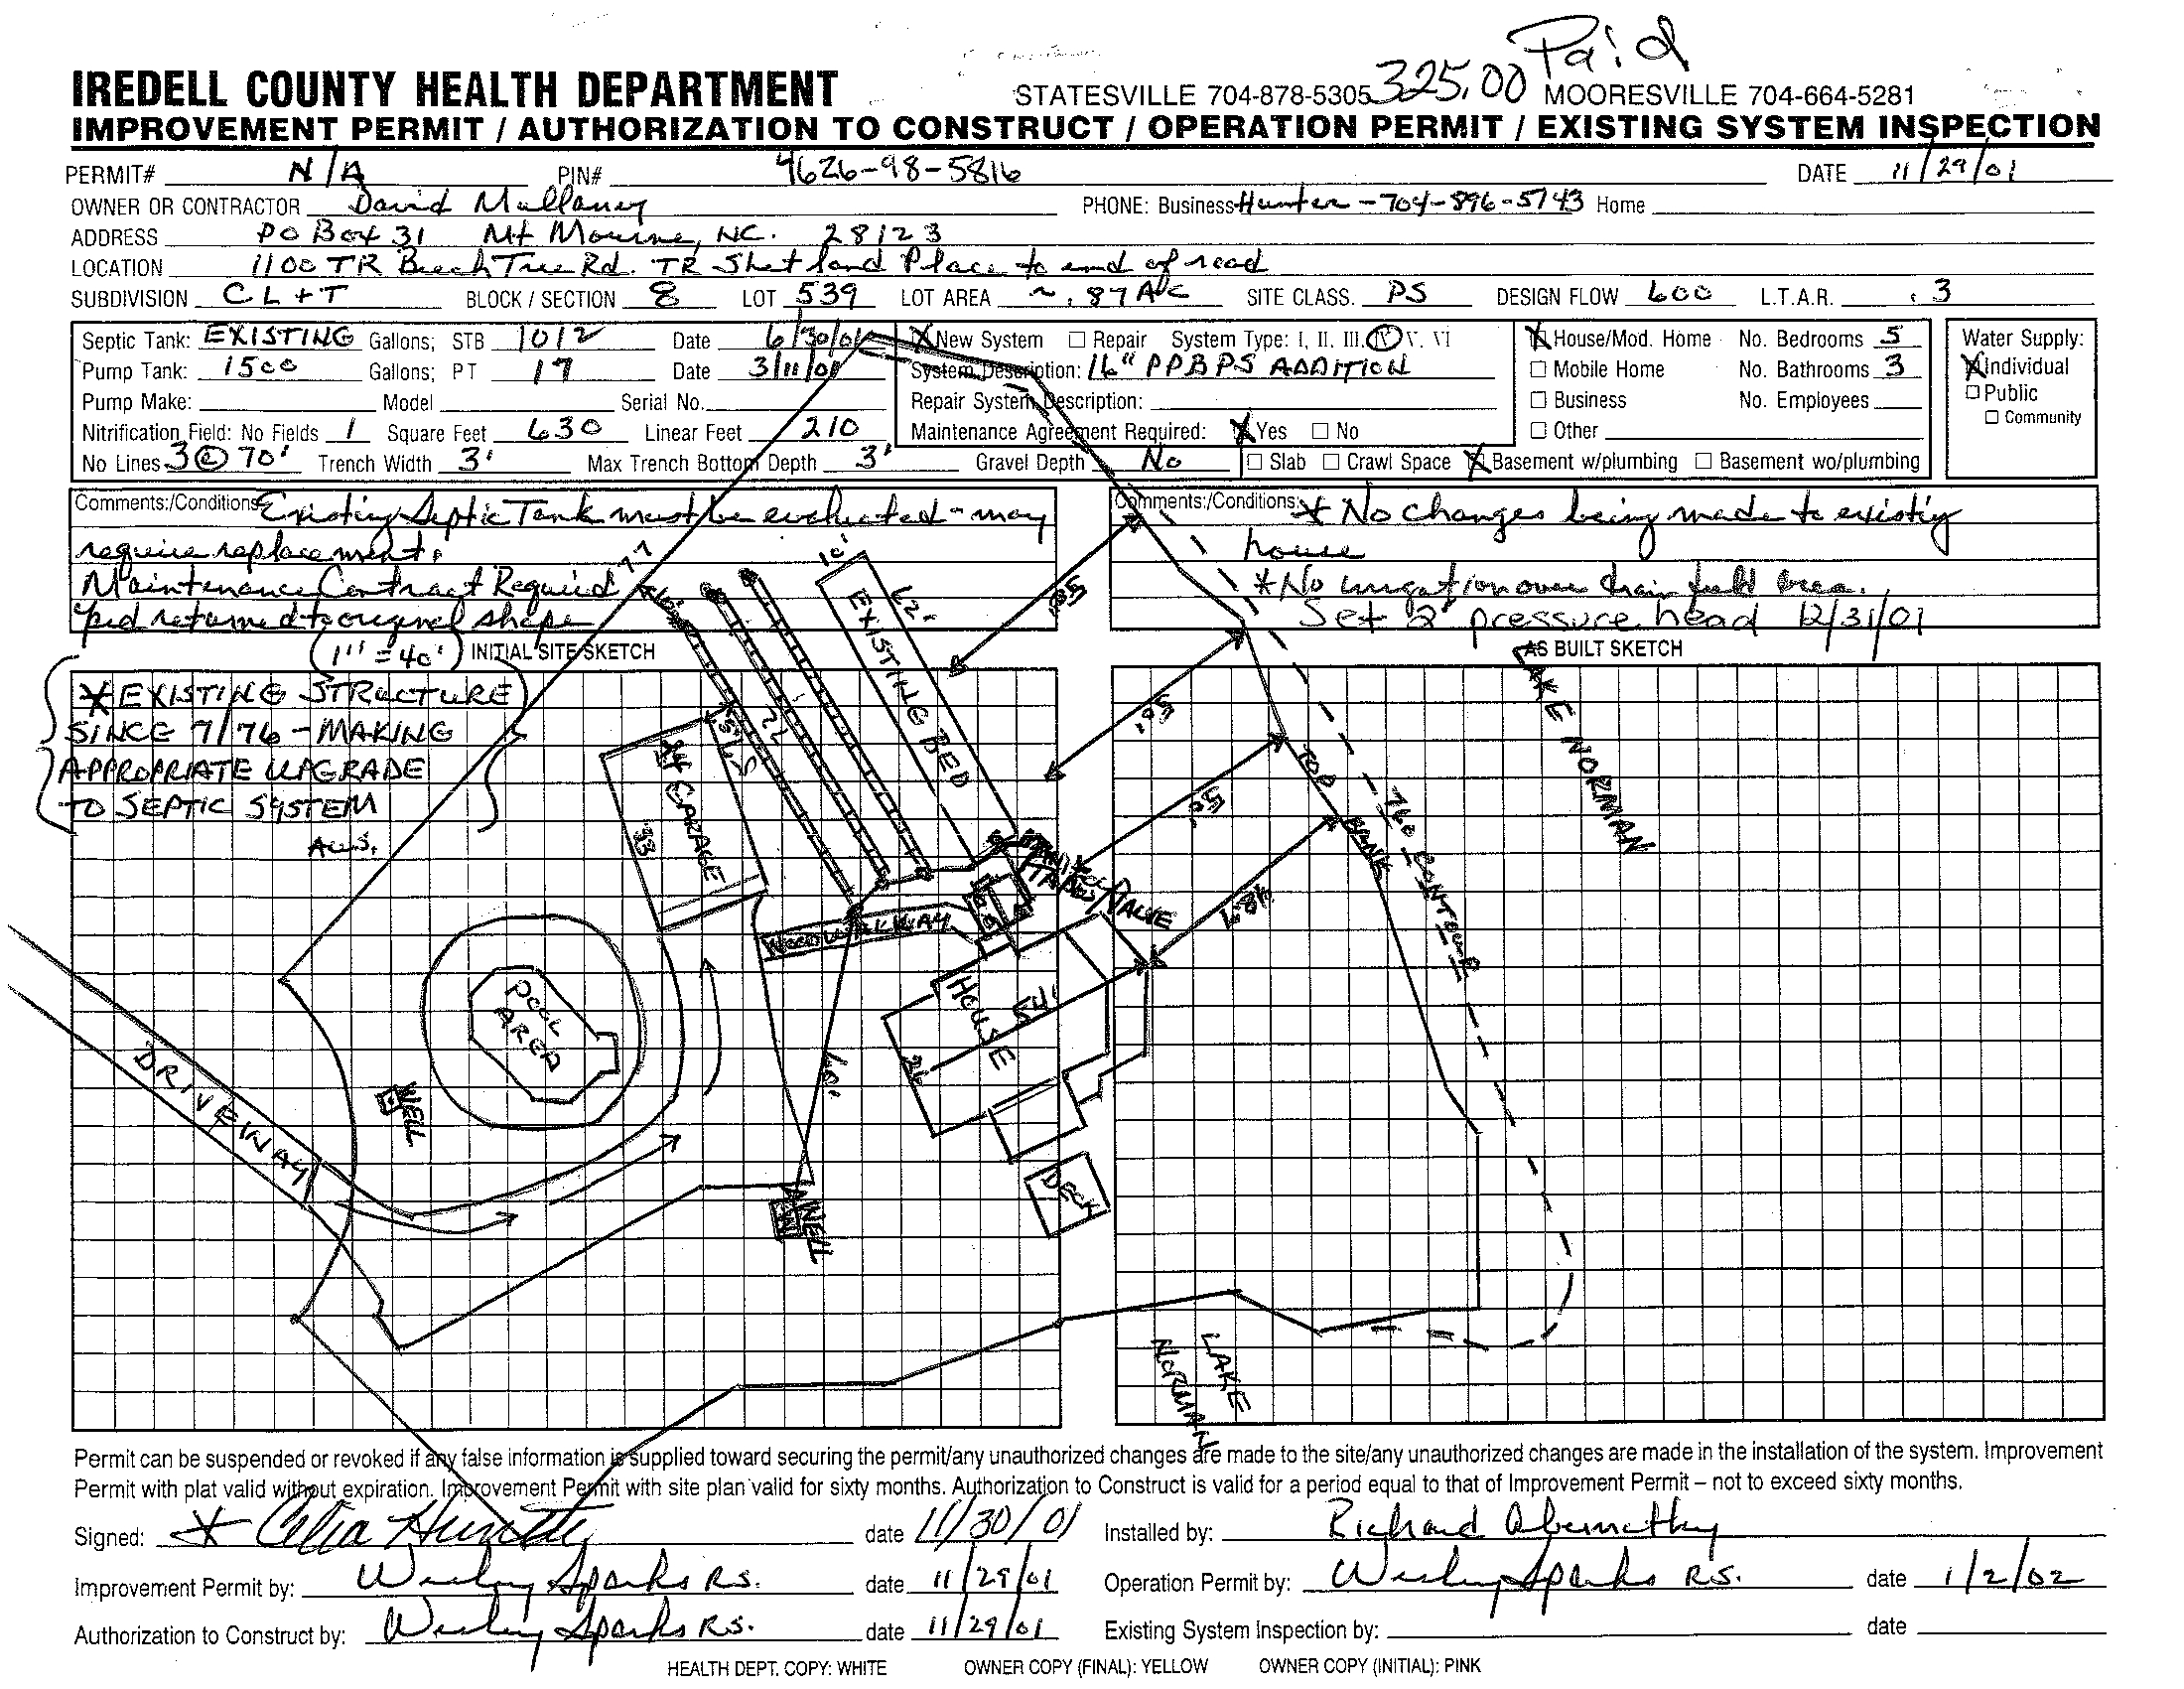 Paid
325.00
IREDELL COUNTY HEALTH DEPARTMENT STATESVILLE 704-878-5305 MOORESVILLE 704-664-5281
IMPROVEMENT PERMIT / AUTHORIZATION TO CONSTRUCT / OPERATION PERMIT / EXISTING SYSTEM INSPECTION
PERMIT# N/A PIN# 4626-98-5816 DATE 11/29/01
OWNER OR CONTRACTOR David Mullaney PHONE: Business Hunter-704-896-5743 Home
ADDRESS PO Box 31 Mt Mourne, NC. 28123
LOCATION 1100 TR Beech Tree Rd. TR Shetland Place to end of road
SUBDIVISION CL+T BLOCK / SECTION 8 LOT 539 LOT AREA ~.87 AC SITE CLASS. PS DESIGN FLOW 600 L.T.A.R. .3
Septic Tank: EXISTING Gallons; STB 1012 Date 6/30/01
Pump Tank: 1500 Gallons; PT 17 Date 3/11/01
Pump Make: Model Serial No.
Nitrification Field: No Fields 1 Square Feet 630 Linear Feet 210
No Lines 3 @ 70' Trench Width 3' Max Trench Bottom Depth 3' Gravel Depth No
New System Repair System Type: I, II, III, IV V. VI
System Description: 16" PPBPS ADDITION
Repair System Description:
Maintenance Agreement Required: Yes No
Slab Crawl Space Basement w/plumbing Basement wo/plumbing
House/Mod. Home No. Bedrooms 5
Mobile Home No. Bathrooms 3
Business No. Employees
Other
Water Supply:
Individual
Public
Community
Comments:/Conditions: Existing Septic Tank must be evaluated - may
require replacement.
Maintenance Contract Required
yard returned to original shape
Comments:/Conditions: * No changes being made to existing
house
* No irrigation over drain field area.
Set 2' pressure head 12/31/01
(1" = 40') INITIAL SITE SKETCH
AS BUILT SKETCH
* EXISTING STRUCTURE
SINCE 7/76 - MAKING
APPROPRIATE UPGRADE
TO SEPTIC SYSTEM
10'
62'
EXISTING BED
50'
50'
50'
48.9
GARAGE
33'
WOOD WALKWAY
VALVE
HOUSE
26
60'
POOL
AREA
WELL
DRIVEWAY
WELL
DECK
TOP BANK
760 CONTOUR
LAKE NORMAN
LAKE
NORMAN
Permit can be suspended or revoked if any false information is supplied toward securing the permit/any unauthorized changes are made to the site/any unauthorized changes are made in the installation of the system. Improvement
Permit with plat valid without expiration. Improvement Permit with site plan valid for sixty months. Authorization to Construct is valid for a period equal to that of Improvement Permit – not to exceed sixty months.
Signed: * Celia Hunter date 11/30/01 Installed by: Richard Abernathy
Improvement Permit by: Wesley Sparks R.S. date 11/29/01 Operation Permit by: Wesley Sparks R.S. date 1/2/02
Authorization to Construct by: Wesley Sparks R.S. date 11/29/01 Existing System Inspection by: date
HEALTH DEPT. COPY: WHITE OWNER COPY (FINAL): YELLOW OWNER COPY (INITIAL): PINK